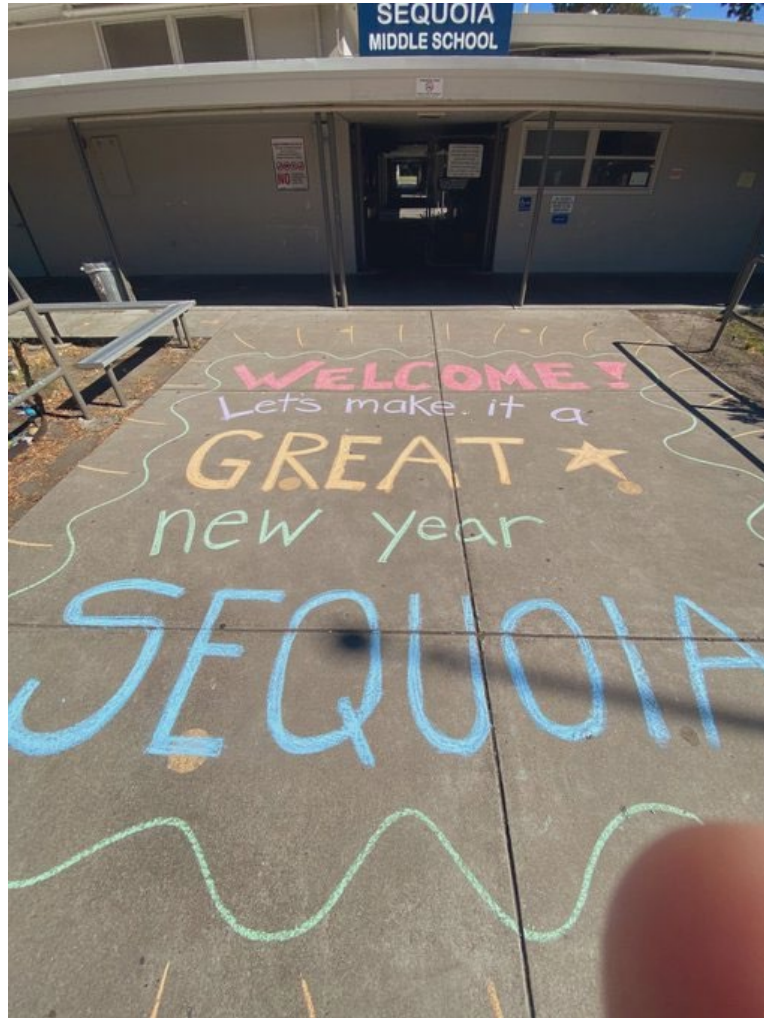 SEQUOIA
MIDDLE SCHOOL
NO
WELCOME!
Let's make it a
GREAT
new year
SEQUOIA